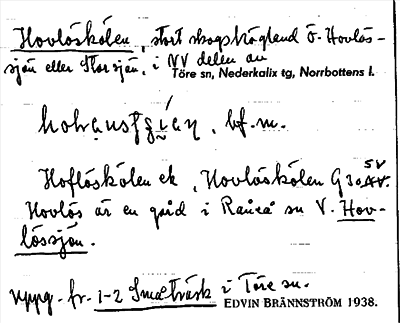 Hovlöskölen, stort skogshögland Ö. Hovlös-
sjön eller Storsjön, i NV delen av
Töre sn, Nederkalix tg, Norrbottens l.
bf. m.
Hoflöskölen ek, Hovlöskölen G 30 SV.
Hovlös är en gård i Råneå sn V. Hov-
lössjön.
uppg. fr. 1-2 Småträsk i Töre sn.
EDVIN BRÄNNSTRÖM 1938.